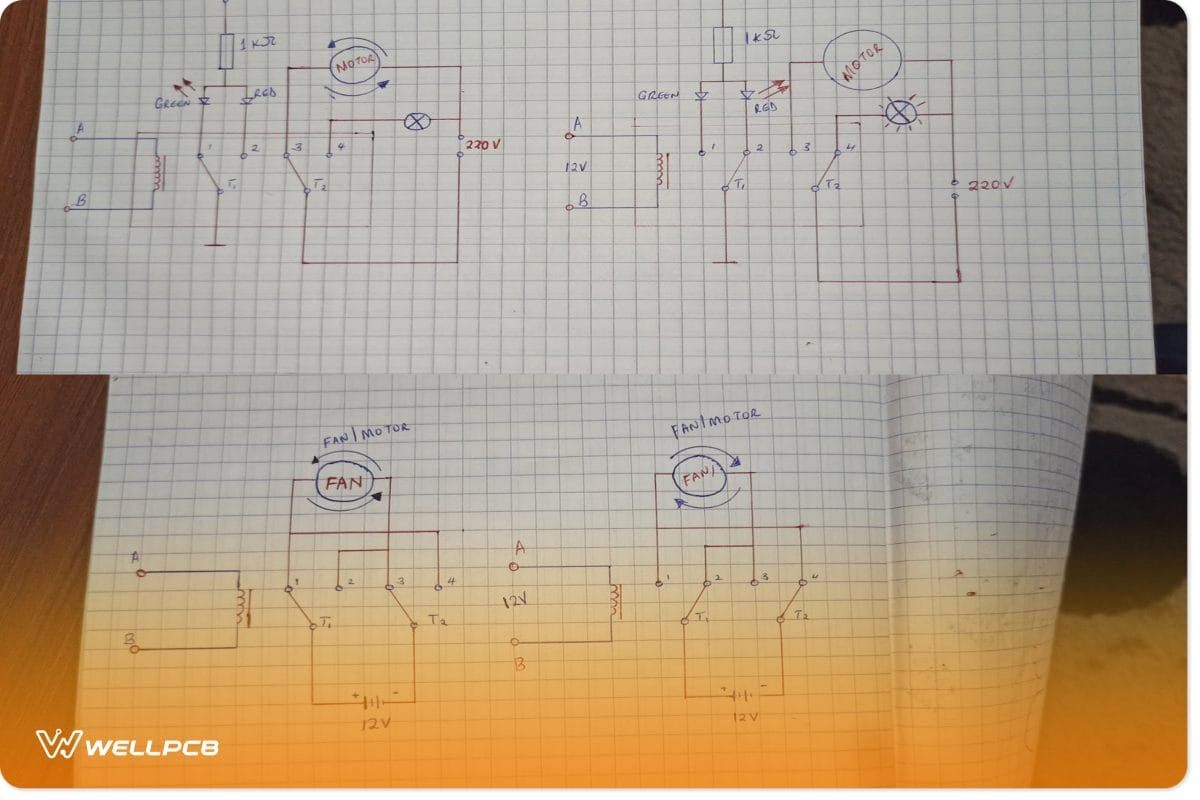 1 KΩ
MOTOR
GREEN
RED
A
1
2
3
4
220 V
T1
T2
B
1 KΩ
MOTOR
GREEN
RED
A
12V
1
2
3
4
T1
T2
220V
B
FAN/MOTOR
FAN
A
1
2
3
4
T1
T2
B
+ -
12V
FAN/MOTOR
FAN/
A
12V
1
2
3
4
T1
T2
B
+ -
12V
WELLPCB